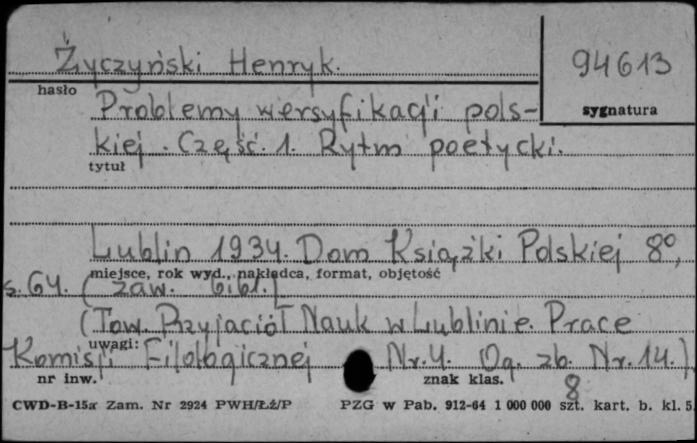 Życzyński Henryk.
94613
hasło
sygnatura
Problemy wersyfikacji pols-
kiej. Część. 1. Rytm poetycki.
tytuł
Lublin 1934. Dom Książki Polskiej 8°,
miejsce, rok wyd., nakładca, format, objętość
s. 64. (zaw. bibl.)
(Tow. Przyjaciół Nauk w Lublinie. Prace
uwagi:
Komisji Filologicznej Nr. 4. Og. zb. Nr. 14.).
nr inw.
znak klas.
8
CWD-B-15a Zam. Nr 2924 PWH/Łź/P PZG w Pab. 912-64 1 000 000 szt. kart. b. kl. 5